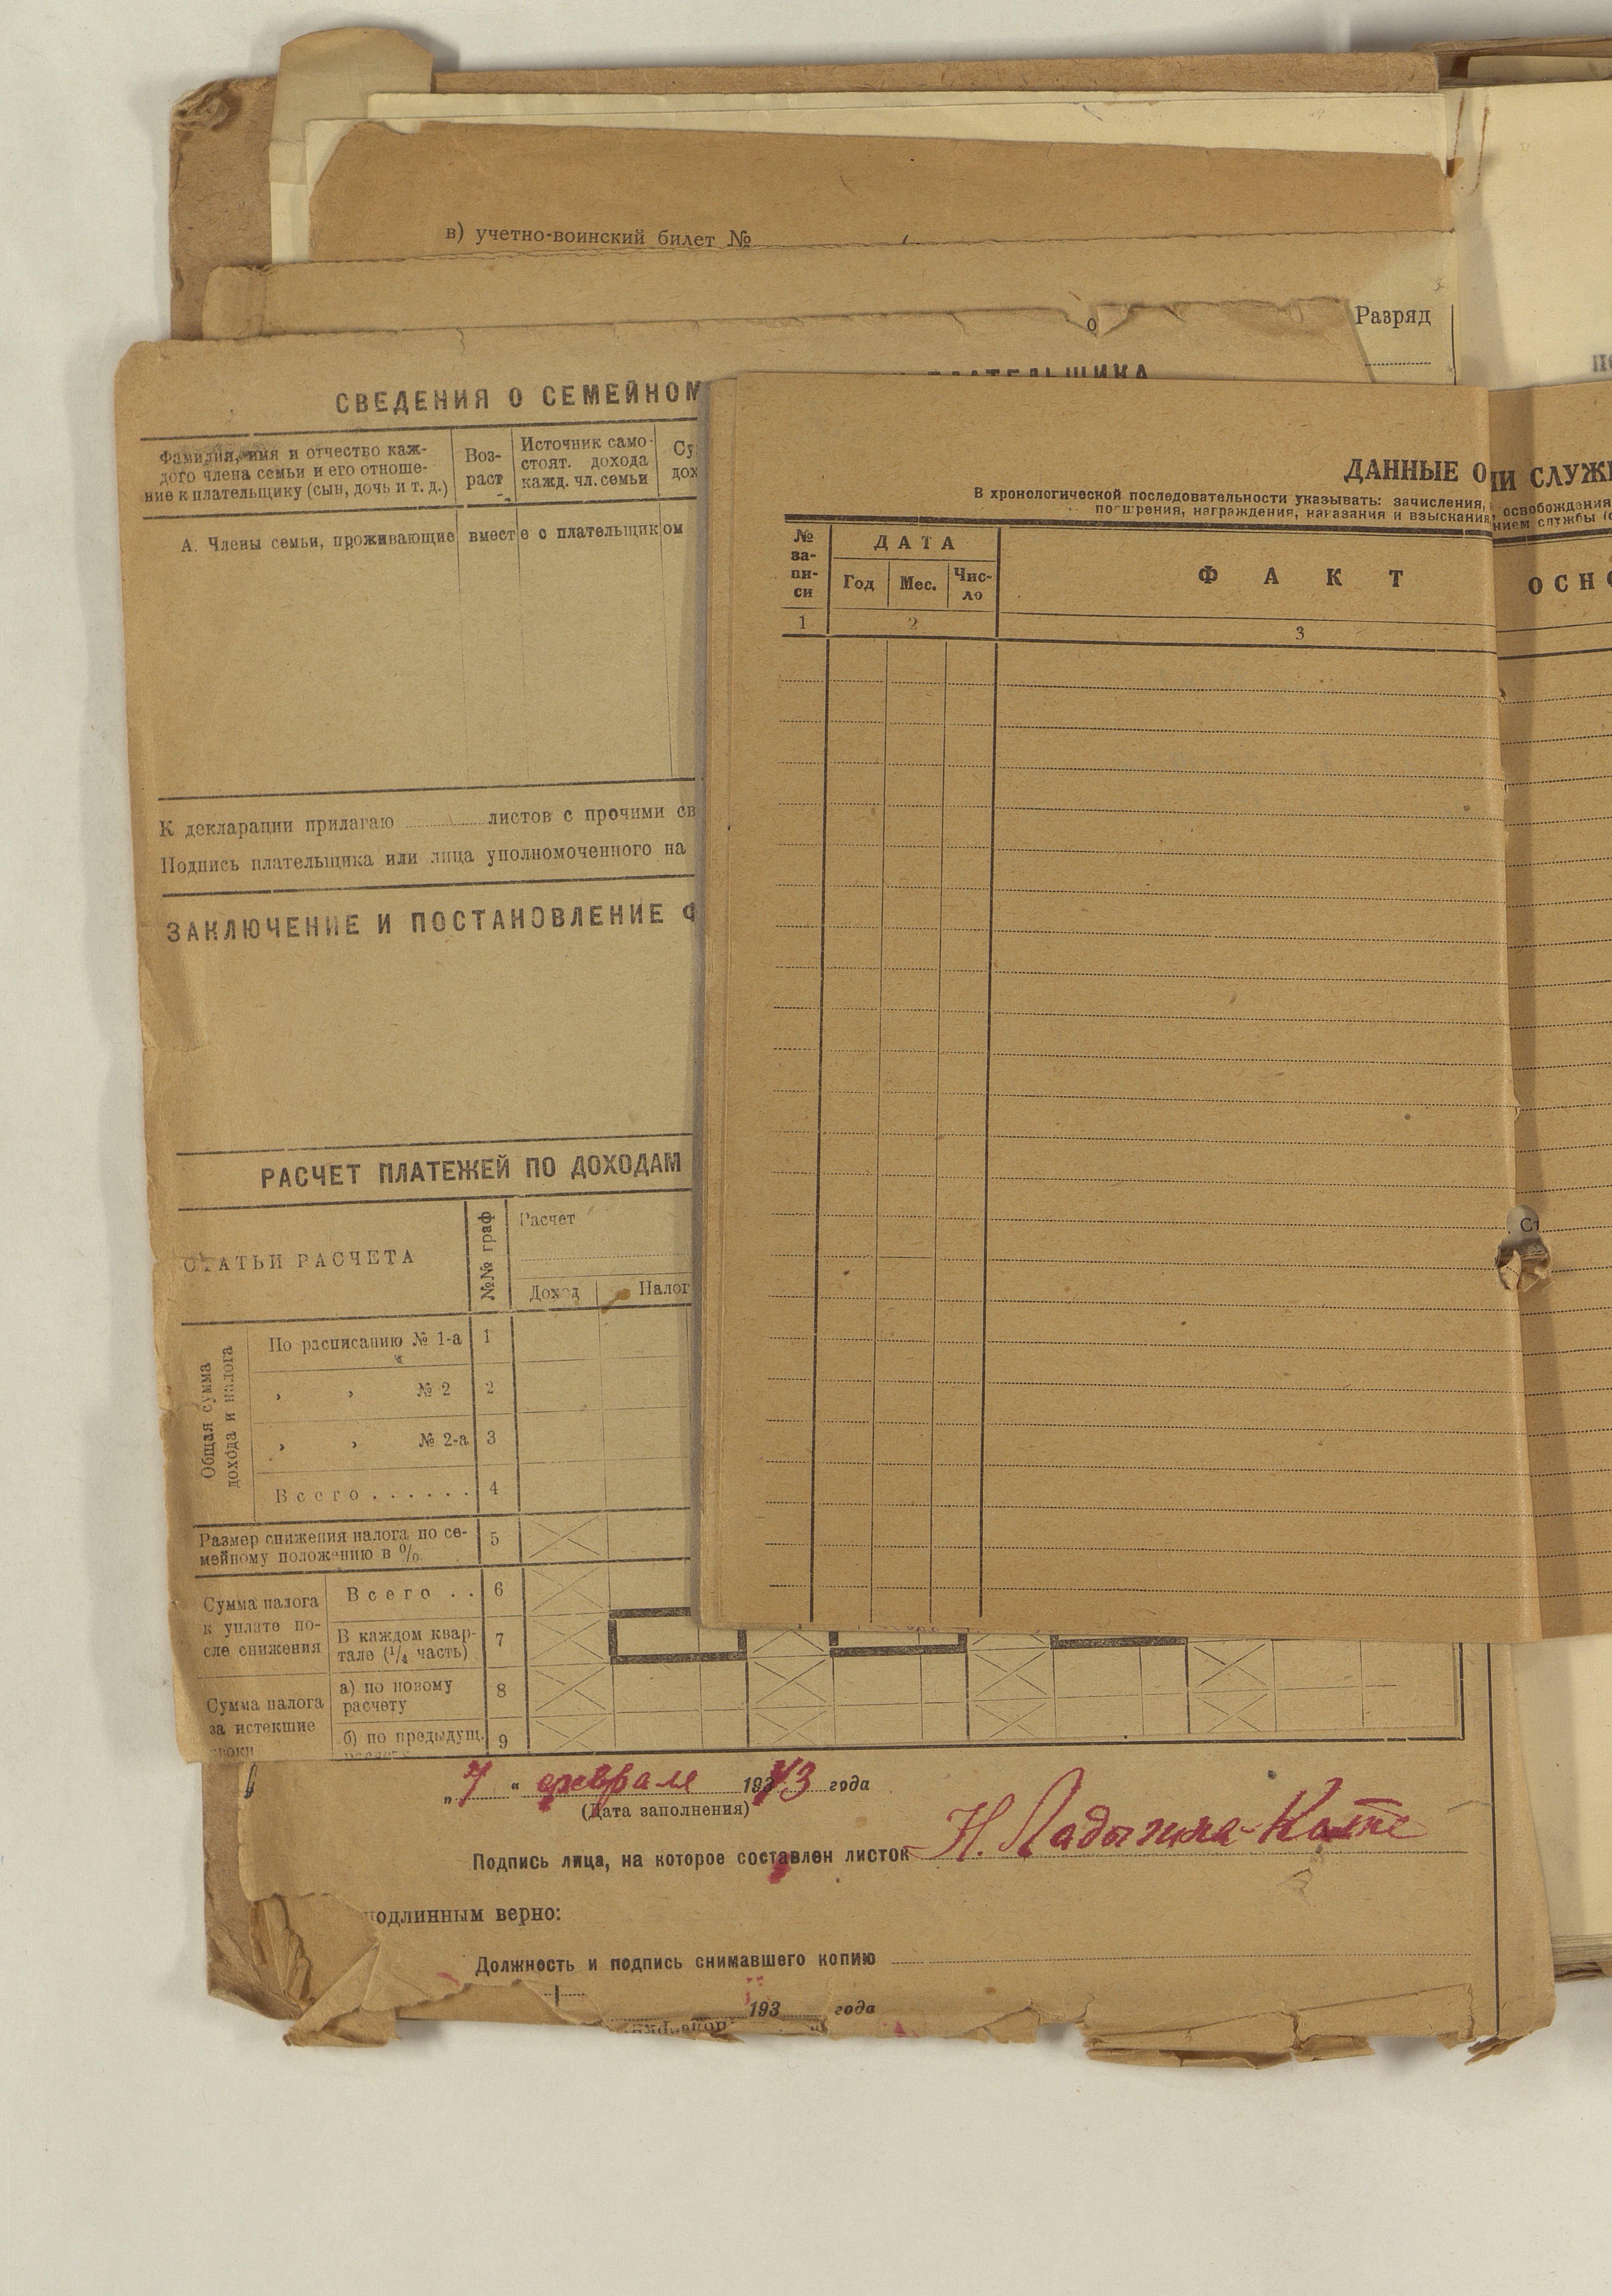 в) учетно-воинский билет №
Разряд
СВЕДЕНИЯ О СЕМЕЙНОМ
ПЛАТЕЛЬЩИКА
Фамилия, имя и отчество каж-
дого члена семьи и его отноше-
ние к плательщику (сын, дочь и т. д.)
Воз-
раст
Источник само-
стоят. дохода
кажд. чл. семьи
Су
дох
А. Члены семьи, проживающие вместе с плательщиком
К декларации прилагаю листов с прочими св
Подпись плательщика или лица уполномоченного на
ЗАКЛЮЧЕНИЕ И ПОСТАНОВЛЕНИЕ Ф
РАСЧЕТ ПЛАТЕЖЕЙ ПО ДОХОДАМ
СТАТЬИ РАСЧЕТА
№№ граф
Расчет
Доход
Налог
Общая сумма
дохода и налога
По расписанию № 1-а 1
" " № 2 2
" " № 2-а 3
Всего . . . . . . 4
Размер снижения налога по се-
мейному положению в % 5
Сумма налога
к уплате по-
сле снижения
Всего . . 6
В каждом квар-
тале (1/4 часть) 7
Сумма налога
за истекшие
сроки
а) по новому
расчету 8
б) по предыдущ.
расчету 9
ДАННЫЕ О
ИИ СЛУЖ
В хронологической последовательности указывать: зачисления,
освобождения
поощрения, награждения, наказания и взыскания
нием службы (с
№
за-
пи-
си
ДАТА
Год
Мес.
Чис-
ло
ФАКТ
ОСНО
1
2
3
Ст
„7 “ февраля 1943 года
(Дата заполнения)
Подпись лица, на которое составлен листок Н. Ладыгина-Котс
подлинным верно:
Должность и подпись снимавшего копию
193 года